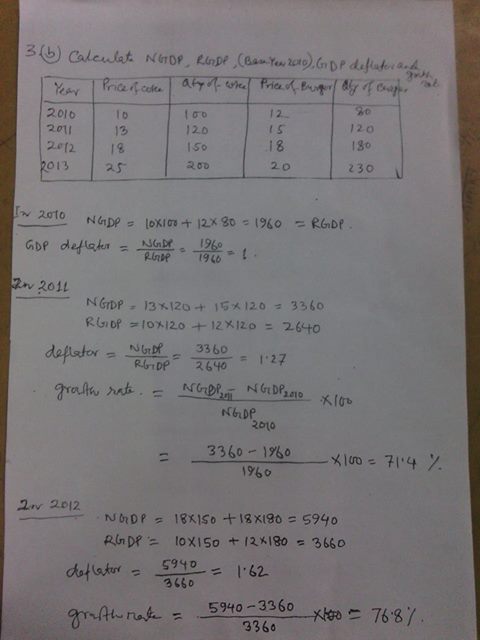 3.(b) Calculate NGDP, RGDP, (Base Year 2010), GDP deflator and growth rate
Year Price of coke Qty of coke Price of Burger Qty of Burger
2010 10 100 12 80
2011 13 120 15 120
2012 18 150 18 180
2013 25 200 20 230
In 2010 NGDP = 10×100 + 12×80 = 1960 = RGDP.
GDP deflator = NGDP/RGDP = 1960/1960 = 1.
In 2011
NGDP = 13×120 + 15×120 = 3360
RGDP = 10×120 + 12×120 = 2640
deflator = NGDP/RGDP = 3360/2640 = 1.27
growth rate = NGDP2011 - NGDP2010 / NGDP2010 ×100
= 3360 - 1960 / 1960 ×100 = 71.4 %
In 2012
NGDP = 18×150 + 18×180 = 5940
RGDP = 10×150 + 12×180 = 3660
deflator = 5940/3660 = 1.62
growth rate = 5940 - 3360 / 3360 ×100 = 76.8%